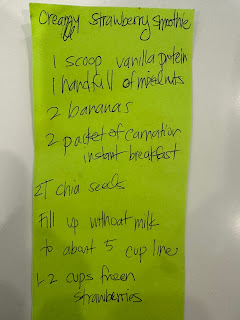 Creamy strawberry smothie
1 scoop vanilla protein
1 handfull of mixed nuts
2 bananas
2 packet of carnation
instant breakfast
2T chia seeds
Fill up without milk
to about 5 cup line
1-2 cups frozen
strawberries